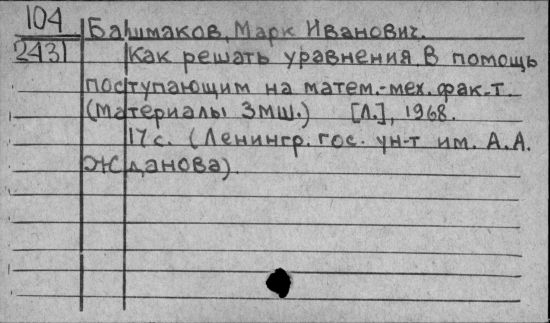 104
Башмаков, Марк Иванович.
2431
Как решать уравнения. В помощь
поступающим на матем.-мех. фак-т.
(Материалы ЗМШ.) [Л.], 1968.
17 с. (Ленингр. гос. ун-т им. А.А.
Жданова).